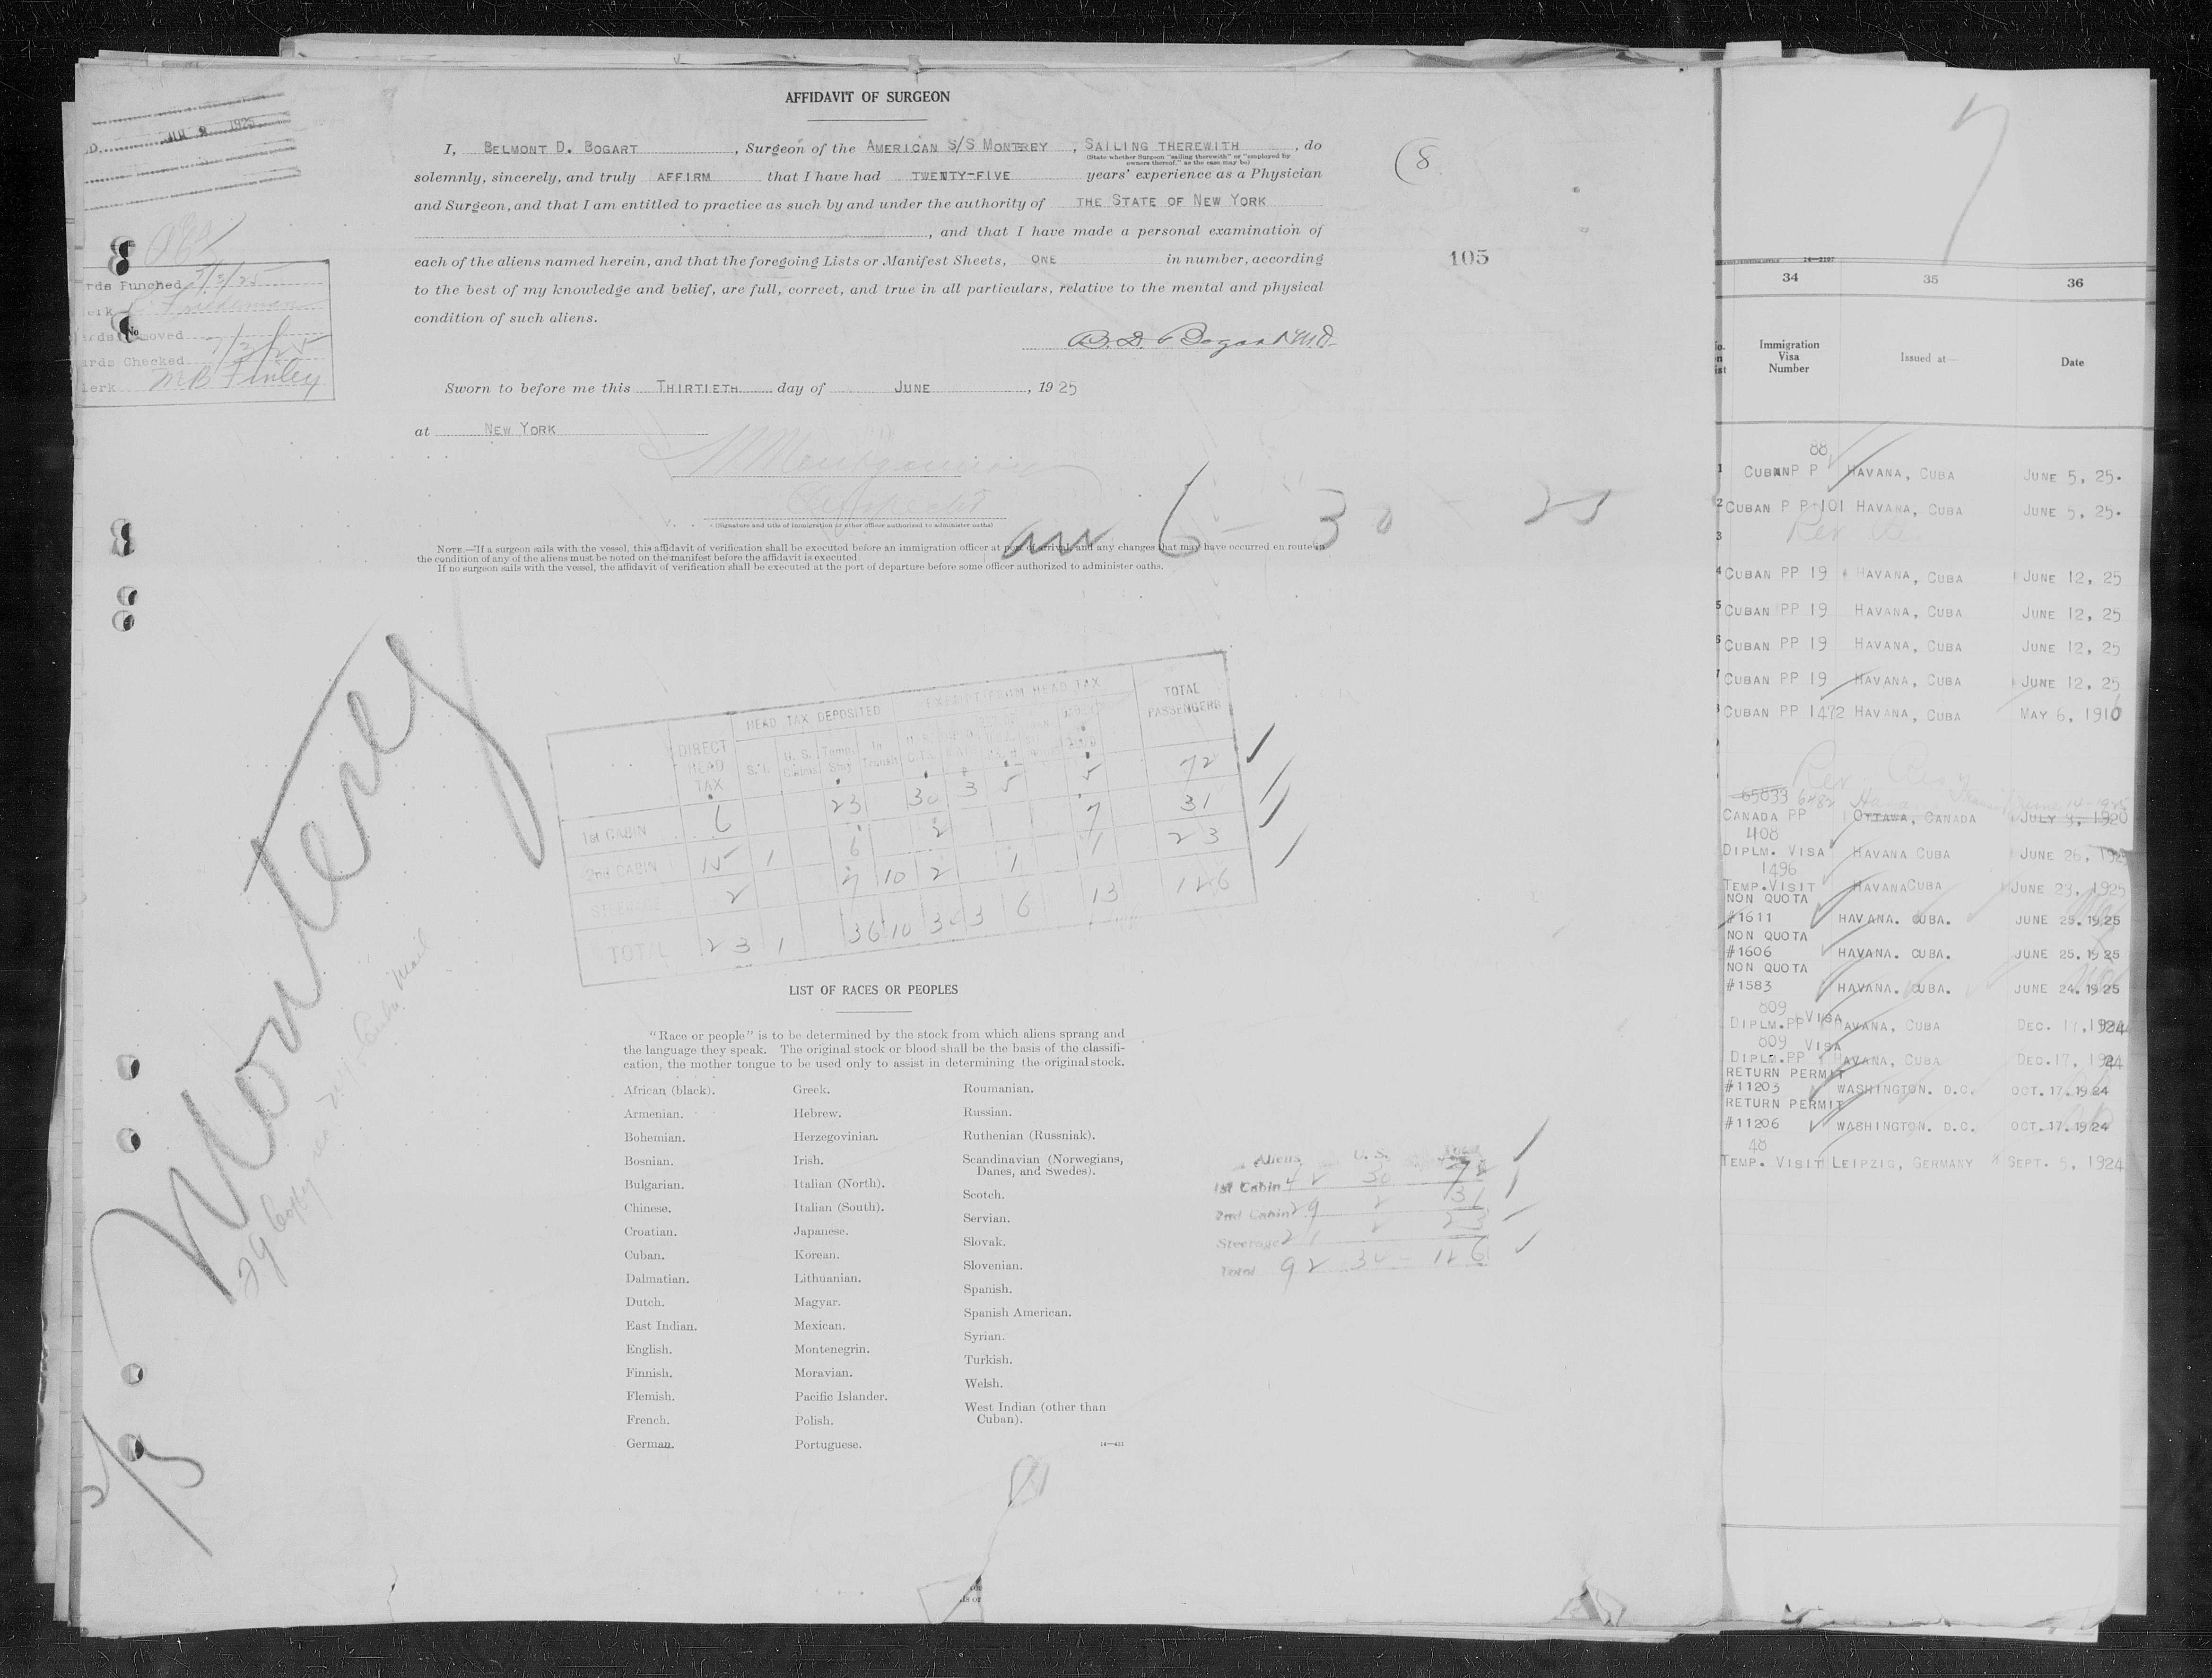 AFFIDAVIT OF SURGEON
I, BELMONT D. BOGART, Surgeon of the AMERICAN S/S MONTEREY, SAILING THEREWITH, do
(State whether Surgeon "sailing therewith" or "employed by
owners thereof," as the case may be)
solemnly, sincerely, and truly AFFIRM that I have had TWENTY-FIVE years' experience as a Physician
and Surgeon, and that I am entitled to practice as such by and under the authority of THE STATE OF NEW YORK
, and that I have made a personal examination of
each of the aliens named herein, and that the foregoing Lists or Manifest Sheets, ONE in number, according
to the best of my knowledge and belief, are full, correct, and true in all particulars, relative to the mental and physical
condition of such aliens.
B. D. Bogart M.D.
Sworn to before me this THIRTIETH day of JUNE, 1925
at NEW YORK
(Signature and title of immigration or other officer authorized to administer oaths)
NOTE.—If a surgeon sails with the vessel, this affidavit of verification shall be executed before an immigration officer at port of arrival, and any changes that may have occurred en route in
the condition of any of the aliens must be noted on the manifest before the affidavit is executed.
If no surgeon sails with the vessel, the affidavit of verification shall be executed at the port of departure before some officer authorized to administer oaths.
6-30-25
8
105
1925
rds Punched 7/2/25
erk Friedeman
No
Cards Checked 7/2/25
lerk MB Finley
Monterey
DIRECT HEAD TAX
HEAD TAX DEPOSITED
EXEMPT FROM HEAD TAX
TOTAL PASSENGERS
1st CABIN 6 23 30 3 5 5 72
2nd CABIN 15 1 6 2 7 31
STEERAGE 2 7 10 2 1 1 23
TOTAL 23 1 36 10 34 3 6 13 126
LIST OF RACES OR PEOPLES
"Race or people" is to be determined by the stock from which aliens sprang and
the language they speak. The original stock or blood shall be the basis of the classifi-
cation, the mother tongue to be used only to assist in determining the original stock.
African (black).
Armenian.
Bohemian.
Bosnian.
Bulgarian.
Chinese.
Croatian.
Cuban.
Dalmatian.
Dutch.
East Indian.
English.
Finnish.
Flemish.
French.
German.
Greek.
Hebrew.
Herzegovinian.
Irish.
Italian (North).
Italian (South).
Japanese.
Korean.
Lithuanian.
Magyar.
Mexican.
Montenegrin.
Moravian.
Pacific Islander.
Polish.
Portuguese.
Roumanian.
Russian.
Ruthenian (Russniak).
Scandinavian (Norwegians,
Danes, and Swedes).
Scotch.
Servian.
Slovak.
Slovenian.
Spanish.
Spanish American.
Syrian.
Turkish.
Welsh.
West Indian (other than
Cuban).
14—421
Aliens U. S. Total
1st Cabin 42 30 72
2nd Cabin 29 2 31
Steerage 21 2 23
Total 92 34 126
7
34 35 36
Immigration
Visa
Number
Issued at—
Date
88
1 CUBAN P P HAVANA, CUBA JUNE 5, 25.
2 CUBAN P P 101 HAVANA, CUBA JUNE 5, 25.
3
4 CUBAN PP 19 HAVANA, CUBA JUNE 12, 25
5 CUBAN PP 19 HAVANA, CUBA JUNE 12, 25
6 CUBAN PP 19 HAVANA, CUBA JUNE 12, 25
7 CUBAN PP 19 HAVANA, CUBA JUNE 12, 25
CUBAN PP 1472 HAVANA, CUBA MAY 6, 1910
65033 6482
CANADA PP OTTAWA, CANADA JULY 3, 1920
408
DIPLM. VISA HAVANA CUBA JUNE 26, 1925
1496
TEMP. VISIT HAVANA CUBA JUNE 23, 1925
NON QUOTA
#1611 HAVANA. CUBA. JUNE 25. 1925
NON QUOTA
#1606 HAVANA. CUBA. JUNE 25. 1925
NON QUOTA
#1583 HAVANA. CUBA. JUNE 24. 1925
809 VISA
DIPLM.PP HAVANA, CUBA DEC. 17, 1924
809 VISA
DIPLM.PP HAVANA, CUBA DEC.17, 1924
RETURN PERMIT
#11203 WASHINGTON. D.C. OCT. 17. 1924
RETURN PERMIT
#11206 WASHINGTON. D.C. OCT. 17. 1924
48
TEMP. VISIT LEIPZIG, GERMANY SEPT. 5, 1924